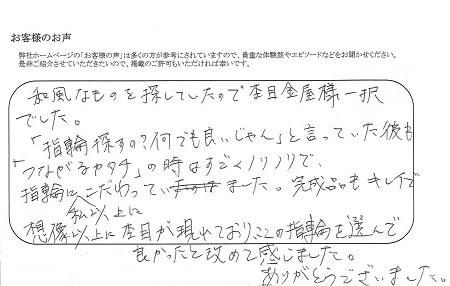 お客様のお声
弊社ホームページの「お客様の声」は多くの方が参考にされていますので、貴重な体験談やエピソードなどをお聞かせください。
是非ご紹介させていただきたいので、掲載のご許可もいただければ幸いです。
和風なものを探していたので杢目金屋様一択
でした。
「指輪探すの?何でも良いじゃん」と言っていた彼も
「つながるカタチ」の時はすごくノリノリで、
指輪にこだわっていました。完成品もキレイで
私以上に
想像以上に杢目が現れておりここの指輪を選んで
良かったと改めて感じました。
ありがとうございました。